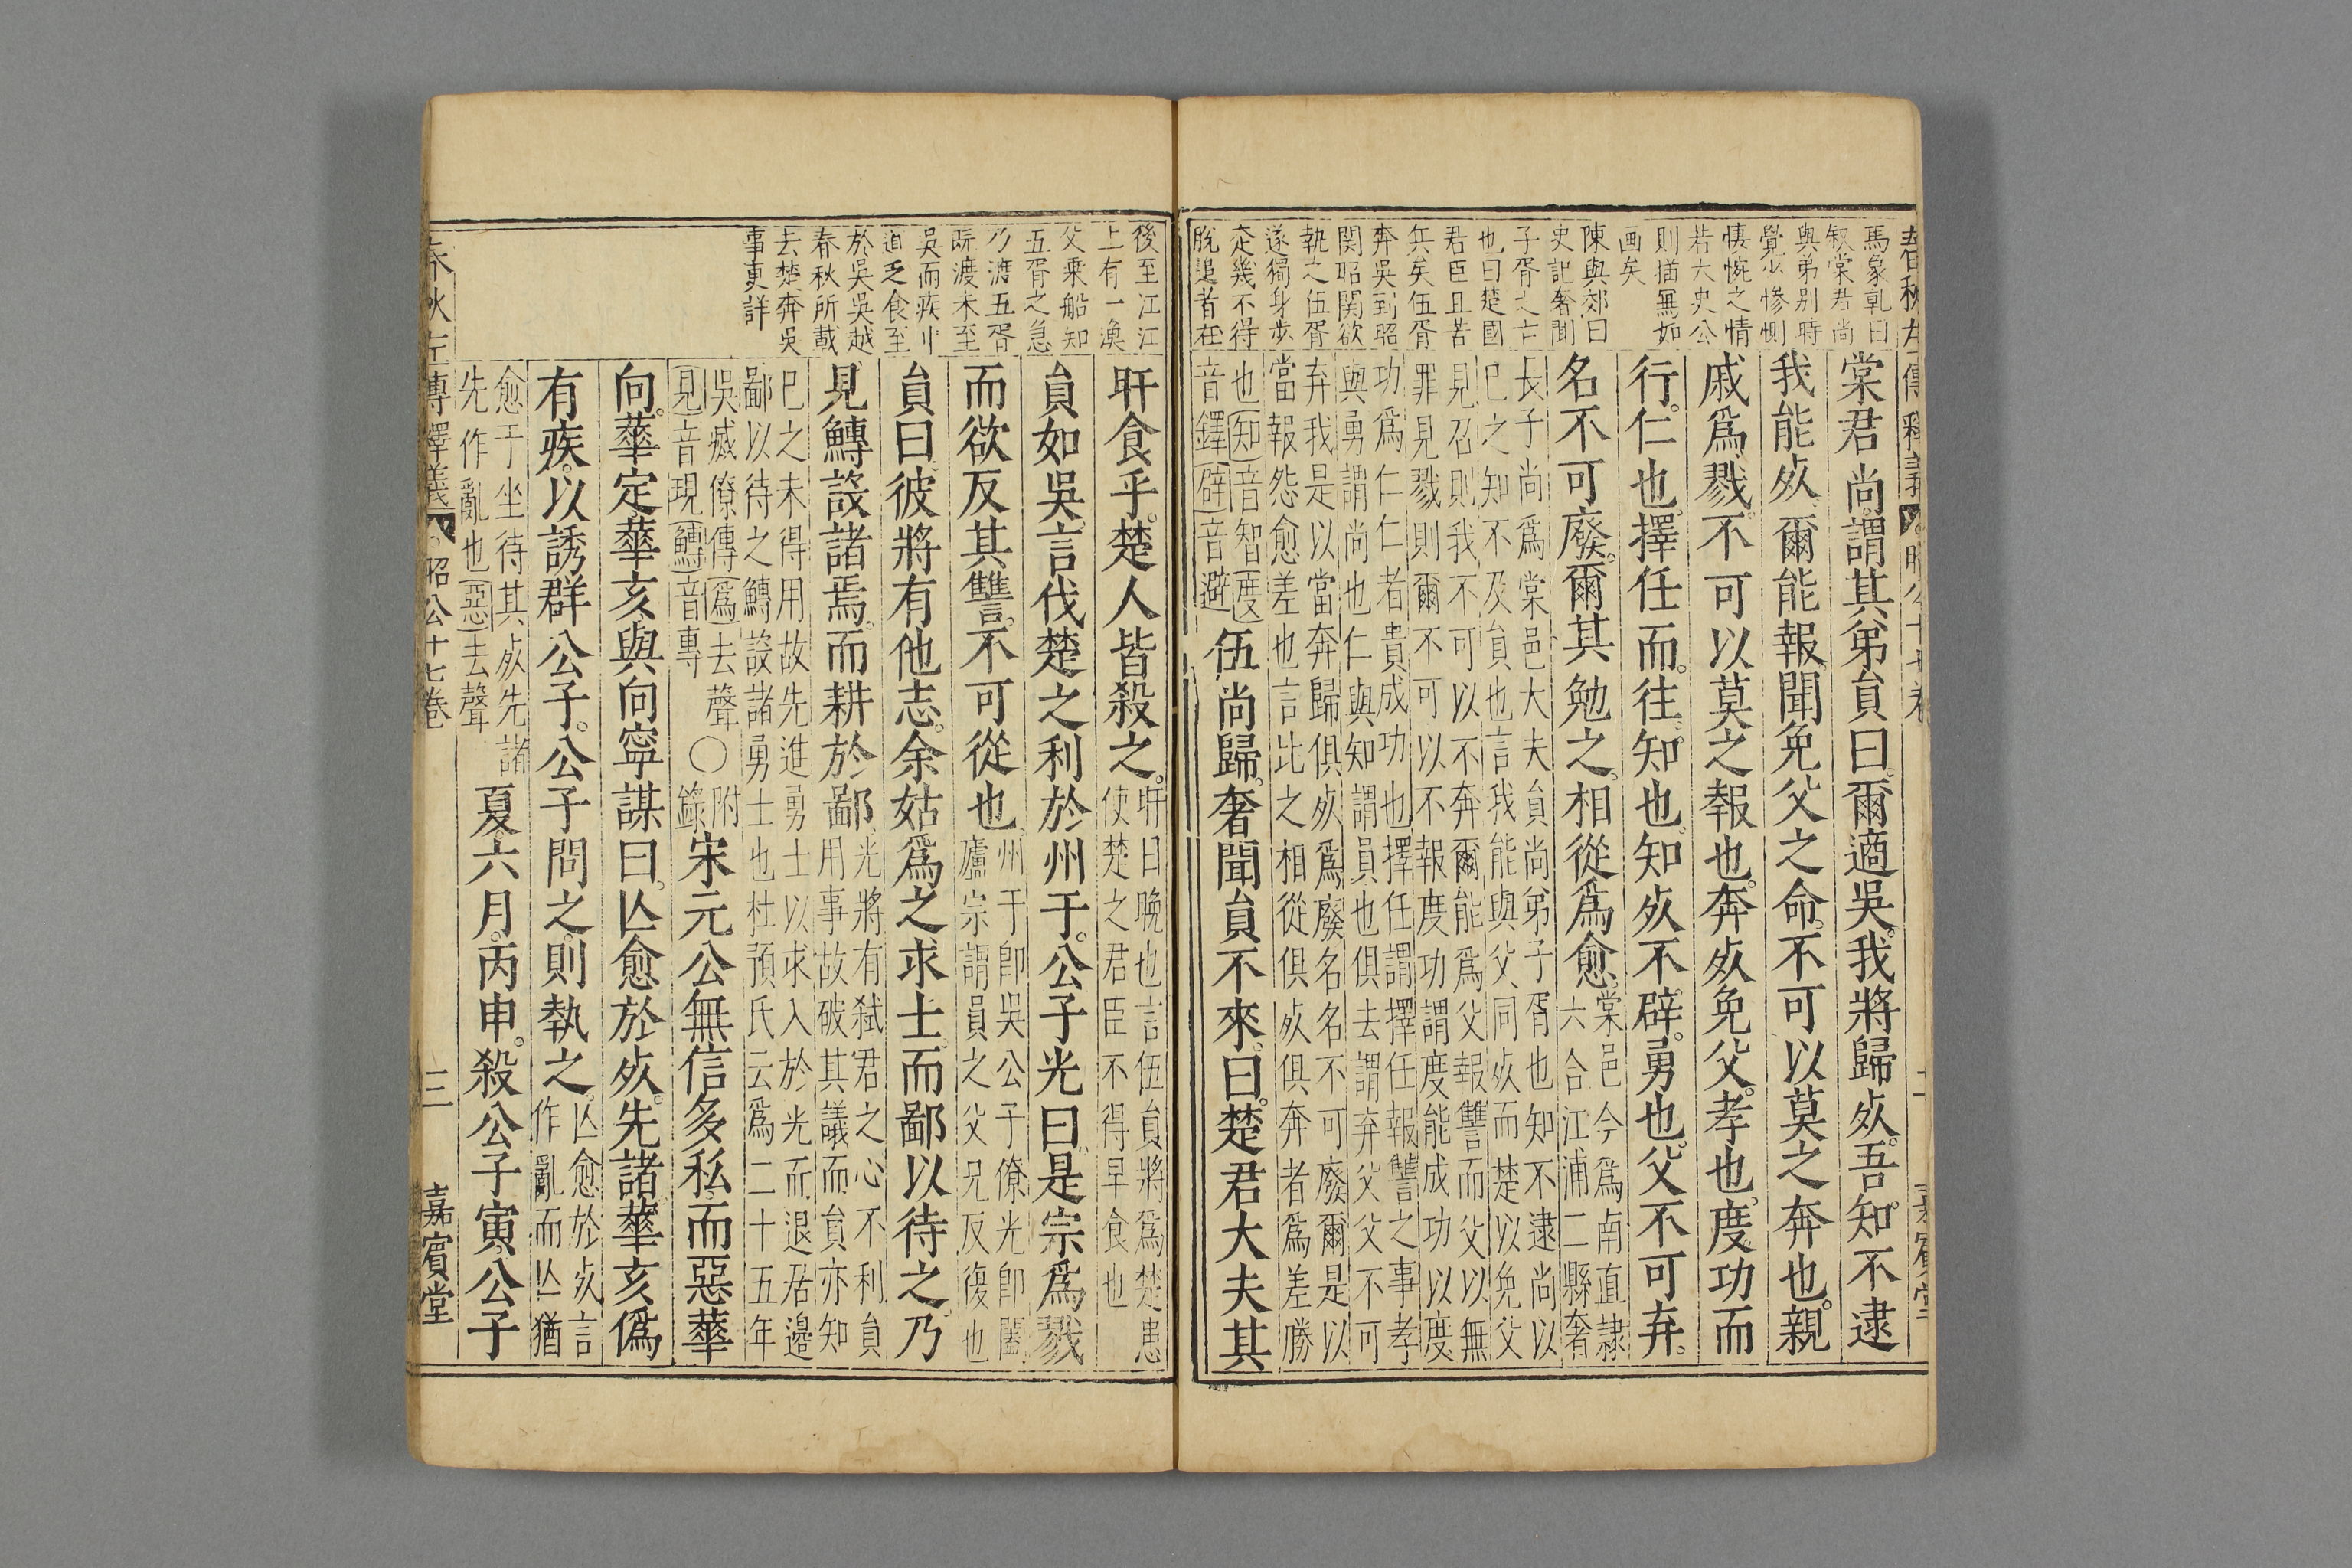 春秋左傳釋義
昭公十七卷
馬象乾曰
叙棠君尚
與弟别時
覺少慘惻
悽惋之情
若大史公
則猶無如
画矣
陳與郊曰
史記奢聞
子胥之亡
也曰楚國
君臣且苦
兵矣伍胥
奔吳到昭
関昭関欲
執之伍胥
遂獨身歩
走幾不得
脫追者在
棠君尚謂其弟員曰爾適吳我將歸死吾知不逮
我能死爾能報聞免父之命不可以莫之奔也親
戚爲戮不可以莫之報也奔死免父孝也度功而
行仁也擇任而往知也知死不辟勇也父不可弃
名不可廢爾其勉之相從爲愈
棠邑今爲南直隷
六合江浦二縣奢
長子尚爲棠邑大夫員尚弟子胥也知不逮尚以
己之知不及員也言我能與父同死而楚以免父
見召則我不可以不奔爾能爲父報讐而父以無
罪見戮則爾不可以不報度功謂度能成功以度
功爲仁仁者貴成功也擇任謂擇任報讐之事孝
與勇謂尚也仁與知謂員也俱去謂弃父父不可
弃我是以當奔歸俱死爲廢名名不可廢爾是以
當報怨愈差也言比之相從俱死俱奔者爲差勝
也知音智度
音鐸辟音避
伍尚歸奢聞員不來曰楚君大夫其
後至江江
上有一漁
父乗船知
五胥之急
乃渡五胥
既渡未至
吳而疾
道乞食至
於吳吳越
春秋所載
去楚奔吳
事更詳
旰食乎楚人皆殺之
旰日晚也言伍員將爲楚患
使楚之君臣不得早食也
員如吳言伐楚之利於州于公子光曰是宗爲戮
而欲反其讐不可從也
州于卽吳公子僚光卽闔
廬宗謂員之父兄反復也
員曰彼將有他志余姑爲之求士而鄙以待之乃
見鱄設諸焉而耕於鄙
光將有弑君之心不利員
用事故破其議而員亦知
已之未得用故先進勇士以求入於光而退居邊
鄙以待之鱄設諸勇士也杜預氏云爲二十五年
吳弑僚傳爲去聲○附
見音現鱄音專 錄
宋元公無信多私而惡華
向華定華亥與向寧謀曰亾愈於死先諸華亥僞
有疾以誘群公子公子問之則執之
亾愈於死言
作亂而亾猶
愈于坐待其死先諸
先作亂也惡去聲
夏六月丙申殺公子寅公子
昭公十七卷
三
嘉賓堂